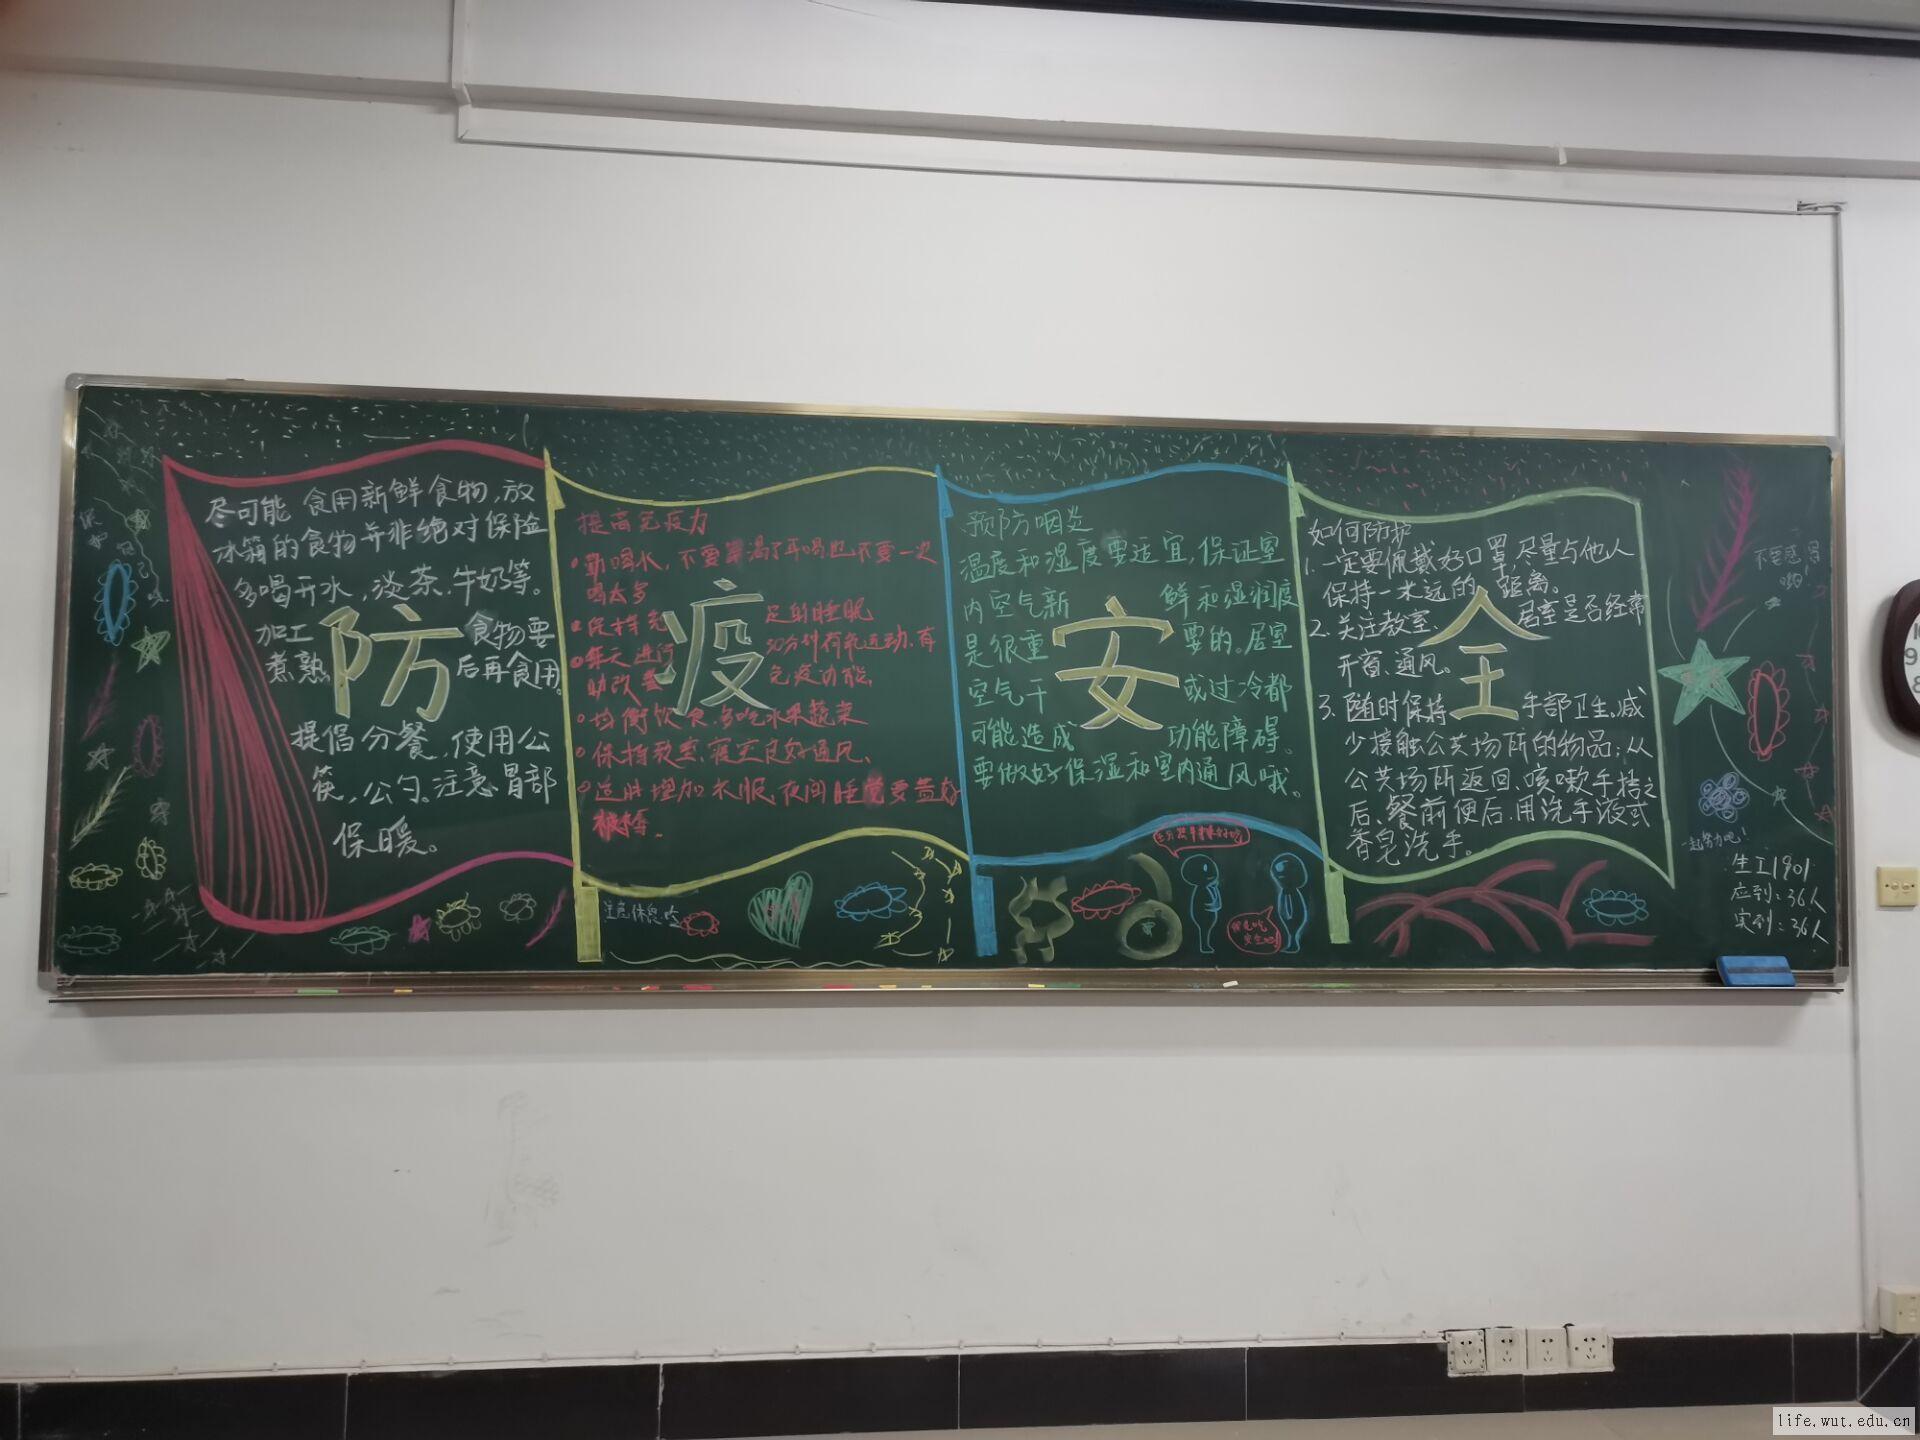 防疫安全
尽可能食用新鲜食物,放
冰箱的食物并非绝对保险
多喝开水,淡茶.牛奶等。
加工 食物要
煮熟 后再食用。
提倡分餐,使用公
筷,公勺。注意胃部
保暖。
提高免疫力
勤喝水,不要等渴了再喝也不要一次
喝太多
保持充 足的睡眠
每天进行 30分钟有氧运动,有
助改善 免疫功能
均衡饮食,多吃水果蔬菜
保持教室、寝室良好通风、
适时增加衣服,夜间睡觉要盖好
被褥。
预防咽炎
温度和湿度要适宜,保证室
内空气新 鲜和湿润度
是很重 要的。居室
空气干 或过冷都
可能造成 功能障碍。
要做好保湿和室内通风哦。
如何防护
1.一定要佩戴好口罩,尽量与他人
保持一米远的 距离。
2.关注教室、 居室是否经常
开窗、通风。
3.随时保持 手部卫生。减
少接触公共场所的物品;从
公共场所返回、咳嗽手捂之
后、餐前便后,用洗手液或
香皂洗手。
保护
自己
注意休息
不要感冒
哦!
一起努力吧!
生工1901
应到:36人
实到:36人
life.wut.edu.cn